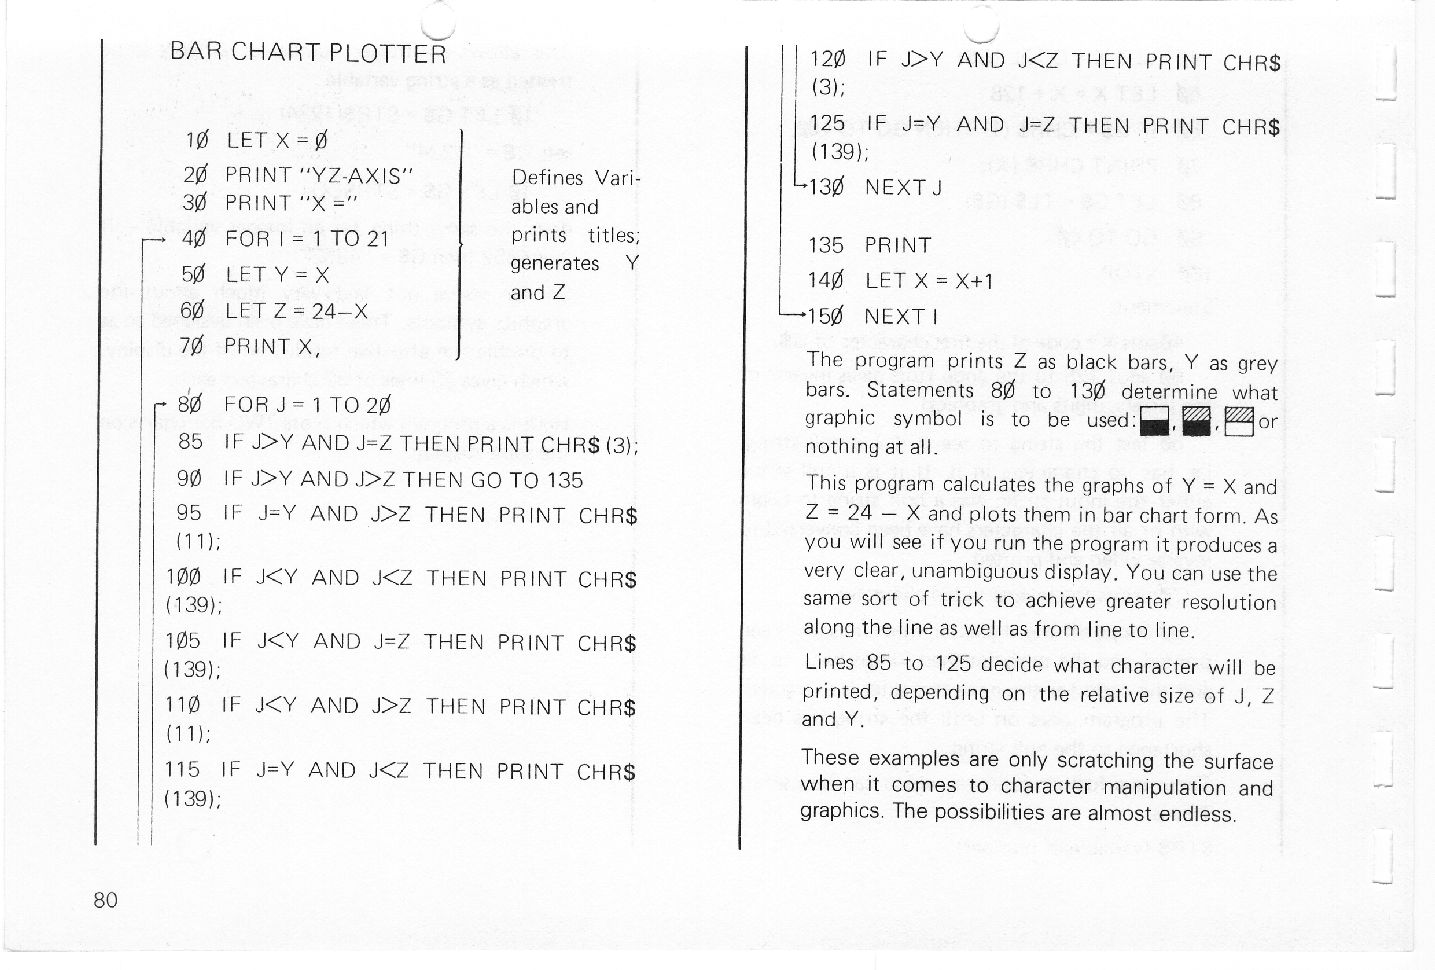 BAR CHART PLOTTER
1Ø LET X = Ø
2Ø PRINT "YZ-AXIS"
3Ø PRINT "X ="
4Ø FOR I = 1 TO 21
5Ø LET Y = X
6Ø LET Z = 24—X
7Ø PRINT X,
Defines Vari-
ables and
prints titles;
generates Y
and Z
8Ø FOR J = 1 TO 2Ø
85 IF J>Y AND J=Z THEN PRINT CHR$ (3);
9Ø IF J>Y AND J>Z THEN GO TO 135
95 IF J=Y AND J>Z THEN PRINT CHR$
(11);
1ØØ IF J<Y AND J<Z THEN PRINT CHR$
(139);
1Ø5 IF J<Y AND J=Z THEN PRINT CHR$
(139);
11Ø IF J<Y AND J>Z THEN PRINT CHR$
(11);
115 IF J=Y AND J<Z THEN PRINT CHR$
(139);
80
12Ø IF J>Y AND J<Z THEN PRINT CHR$
(3);
125 IF J=Y AND J=Z THEN PRINT CHR$
(139);
13Ø NEXT J
135 PRINT
14Ø LET X = X+1
15Ø NEXT I
The program prints Z as black bars, Y as grey
bars. Statements 8Ø to 13Ø determine what
graphic symbol is to be used: , , or
nothing at all.
This program calculates the graphs of Y = X and
Z = 24 — X and plots them in bar chart form. As
you will see if you run the program it produces a
very clear, unambiguous display. You can use the
same sort of trick to achieve greater resolution
along the line as well as from line to line.
Lines 85 to 125 decide what character will be
printed, depending on the relative size of J, Z
and Y.
These examples are only scratching the surface
when it comes to character manipulation and
graphics. The possibilities are almost endless.